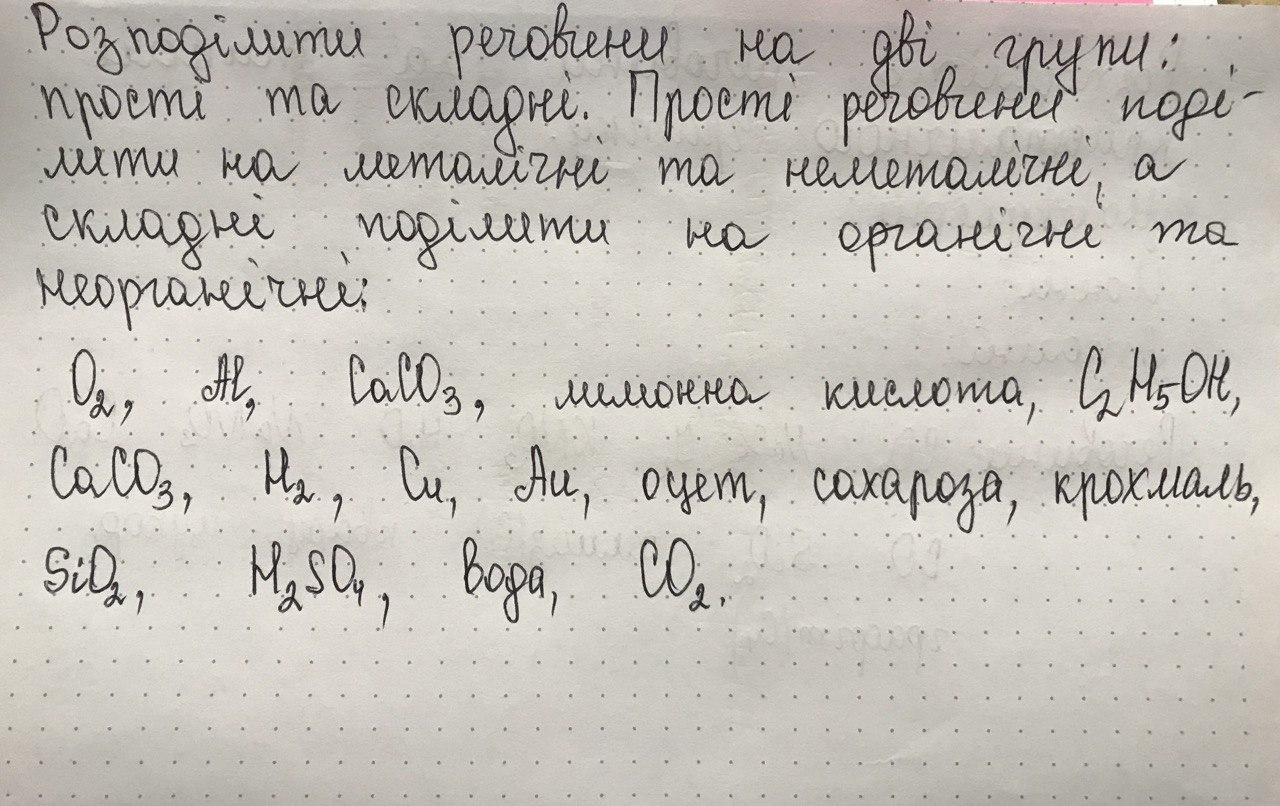 Розподілити речовини на дві групи:
прості та складні. Прості речовини поді-
лити на металічні та неметалічні, а
складні поділити на органічні та
неорганічні:
O₂, Al, CaCO₃, лимонна кислота, C₂H₅OH,
CaCO₃, H₂, Cu, Au, оцет, сахароза, крохмаль,
SiO₂, H₂SO₄, вода, CO₂.